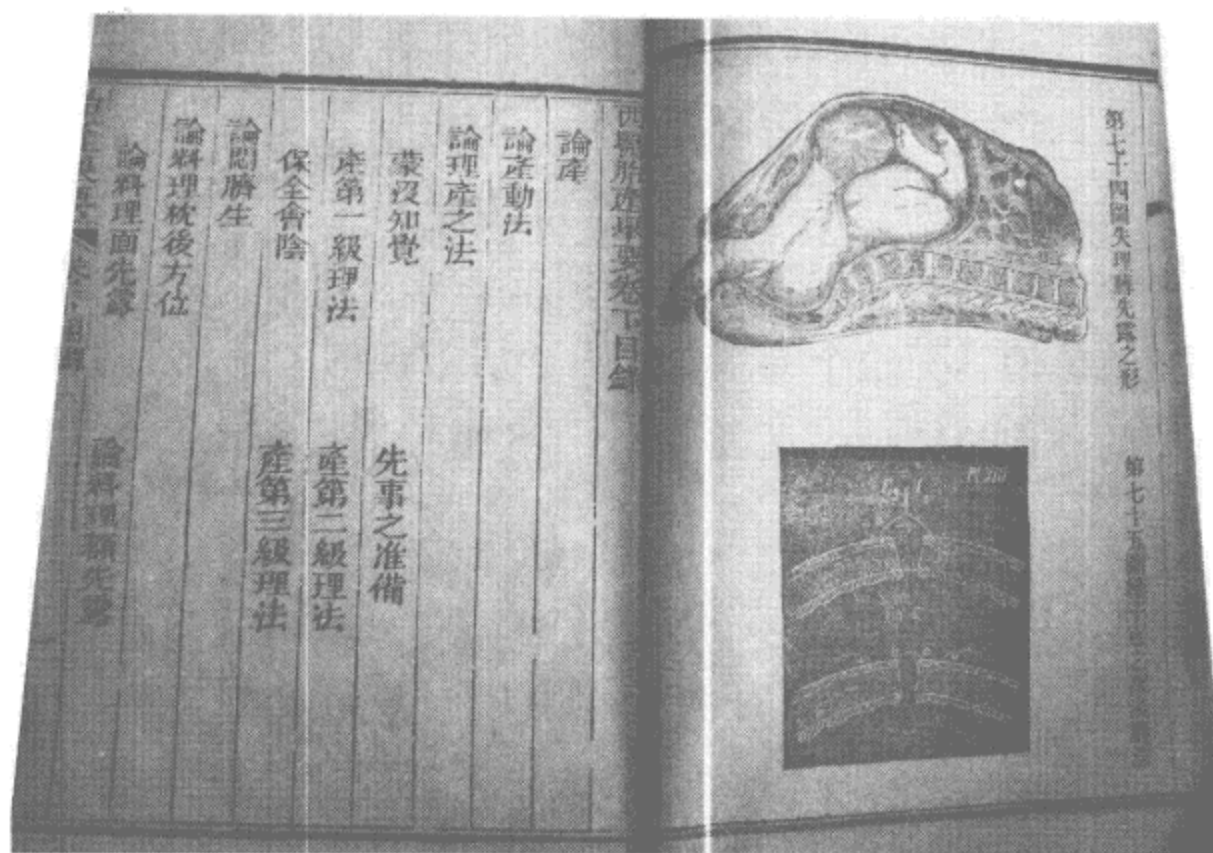 第七十四圖失理轉先露之形
第七十五圖
西醫胎產舉要卷下目錄
論產
論產動法
論理產之法
蒙沒知覺
先事之准備
產第一級理法
產第二級理法
保全會陰
產第三級理法
論悶臍生
論料理枕後方位
論料理面先露
論料理額先露